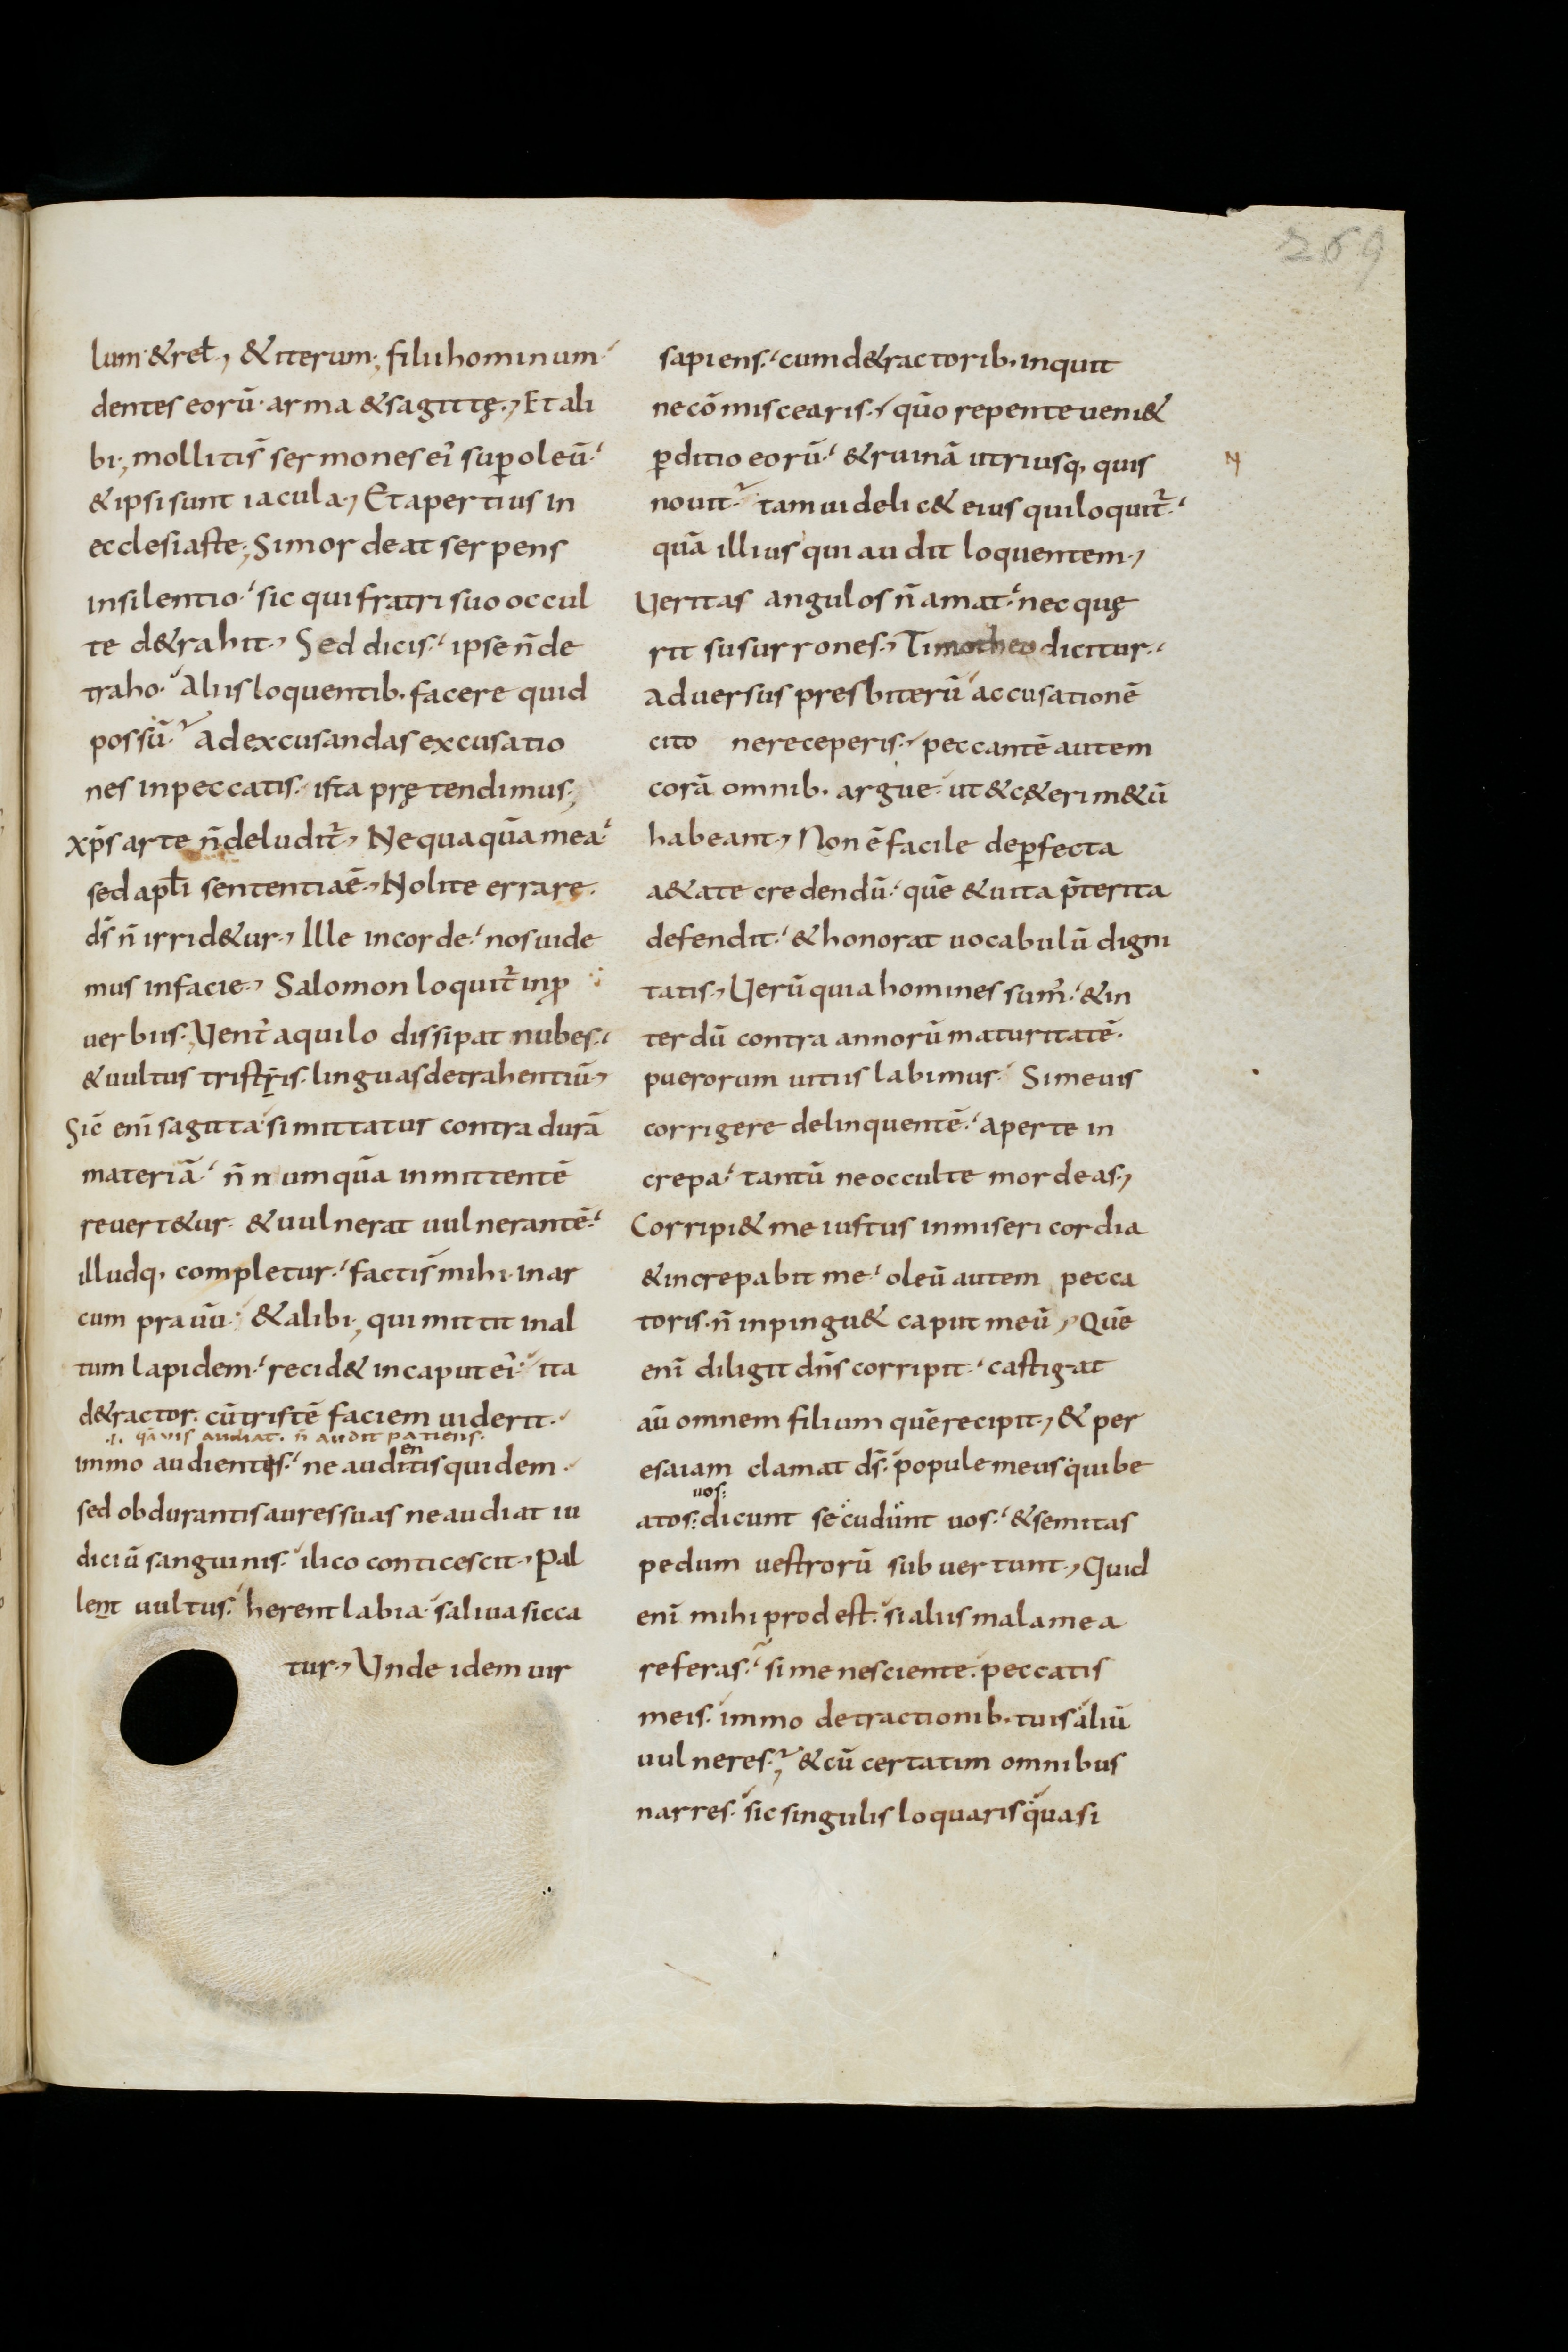 269
lum· &reł·, &iterum·, filii hominum·
dentes eorū· arma &sagittę·, Et ali
bi·, mollitis̄ sermones ei᾽ sup̱ oleū·
&ipsi sunt iacula·, Et apertius in
ecclesiaste·, Simordeat serpens
insilentio· sic qui fratri suo occul
te d&rahit·, Sed dicis· ipse n̄ de
traho· Aliis loquentib· facere quid
possū· Ad excusandas excusatio
nes inpeccatis· ista prętendimus·,
xp̄s arte n̄ deludit᾽·, Nequaquā mea·
sed apłi sententia ē·, Nolite errare·
ds̄ n̄ irrid&ur·, Ille incorde· nos uide
mus infacie·, Salomon loquit᾽ inp̱
uerbiis·, Vent᾽ aquilo dissipat nubes·
&uultus tristis· linguas detrahentiū·,
Sic̄ eni᾽ sagitta· si mittatur contra durā
materiā· n̄ numquā inmittentē
reuert&ur· &uulnerat uulnerantē·
illudq· completur· factis᾽ mihi· inar
cum prauū· &alibi·, qui mittit inal
tum lapidem· recid& incaput ei᾽· ita
d&ractor· cū tristē faciem uiderit·
·i· quāuis audiat· n̄ audit patiens·
immo audientis· ne auditis quidem·
en
sed obdurantis aures suas ne audiat iu
diciū sanguinis· ilico conticescit·, Pal
lent uultus· herent labia· saliua sicca
tur·, Vnde idem uir
sapiens· cum d&ractorib· inquit
ne cōmiscearis· quō repente ueni&
p̱ditio eorū· &ruinā utriusq· quis
nouit· tam uidelic& eius qui loquit᾽·
quā illius qui audit loquentem·,
Veritas angulos n̄ amat· nec quę
rit susurrones·, Timotheo dicitur·
aduersus presbiterū accusationē
cito ne receperis· peccantē autem
corā omnib· argue· ut &c&eri m&ū
habeant·, Non ē facile dep̱fecta
a&ate credendū· quē &uita p̄terita
defendit· &honorat uocabulū digni
tatis·, Verū quia homines sum᾽· &in
terdū contra annorū maturitatē·
puerorum uitiis labimur· Sime uis
corrigere delinquentē· aperte in
crepa· tantū ne occulte mordeas·,
Corripi& me iustus in misericordia
&increpabit me· oleū autem pecca
toris· n̄ inpingu& caput meū·, Quē
eni᾽ diligit dn̄s corripit· castigat
aū omnem filium quē recipit·, & per
esaiam clamat ds̄· popule meus qui be
uos:
atos: dicunt seducunt uos· &semitas
pedum uestrorū subuertunt·, Quid
eni᾽ mihi prodest· si alius mala mea
referas· si me nesciente· peccatis
meis· immo detractionib· tuis aliū
uulneres·, &cū certatim omnibus
narres· sic singulis loquaris quasi